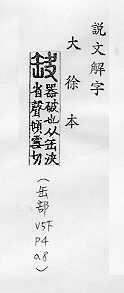 說文解字
大徐本
缺
器破也从缶決
省聲傾雪切
(缶部
V5下
P4
a8)